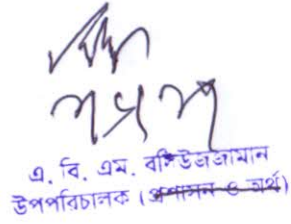 এ. বি. এম. বদিউজজামান
উপপরিচালক (প্রশাসন ও অর্থ)